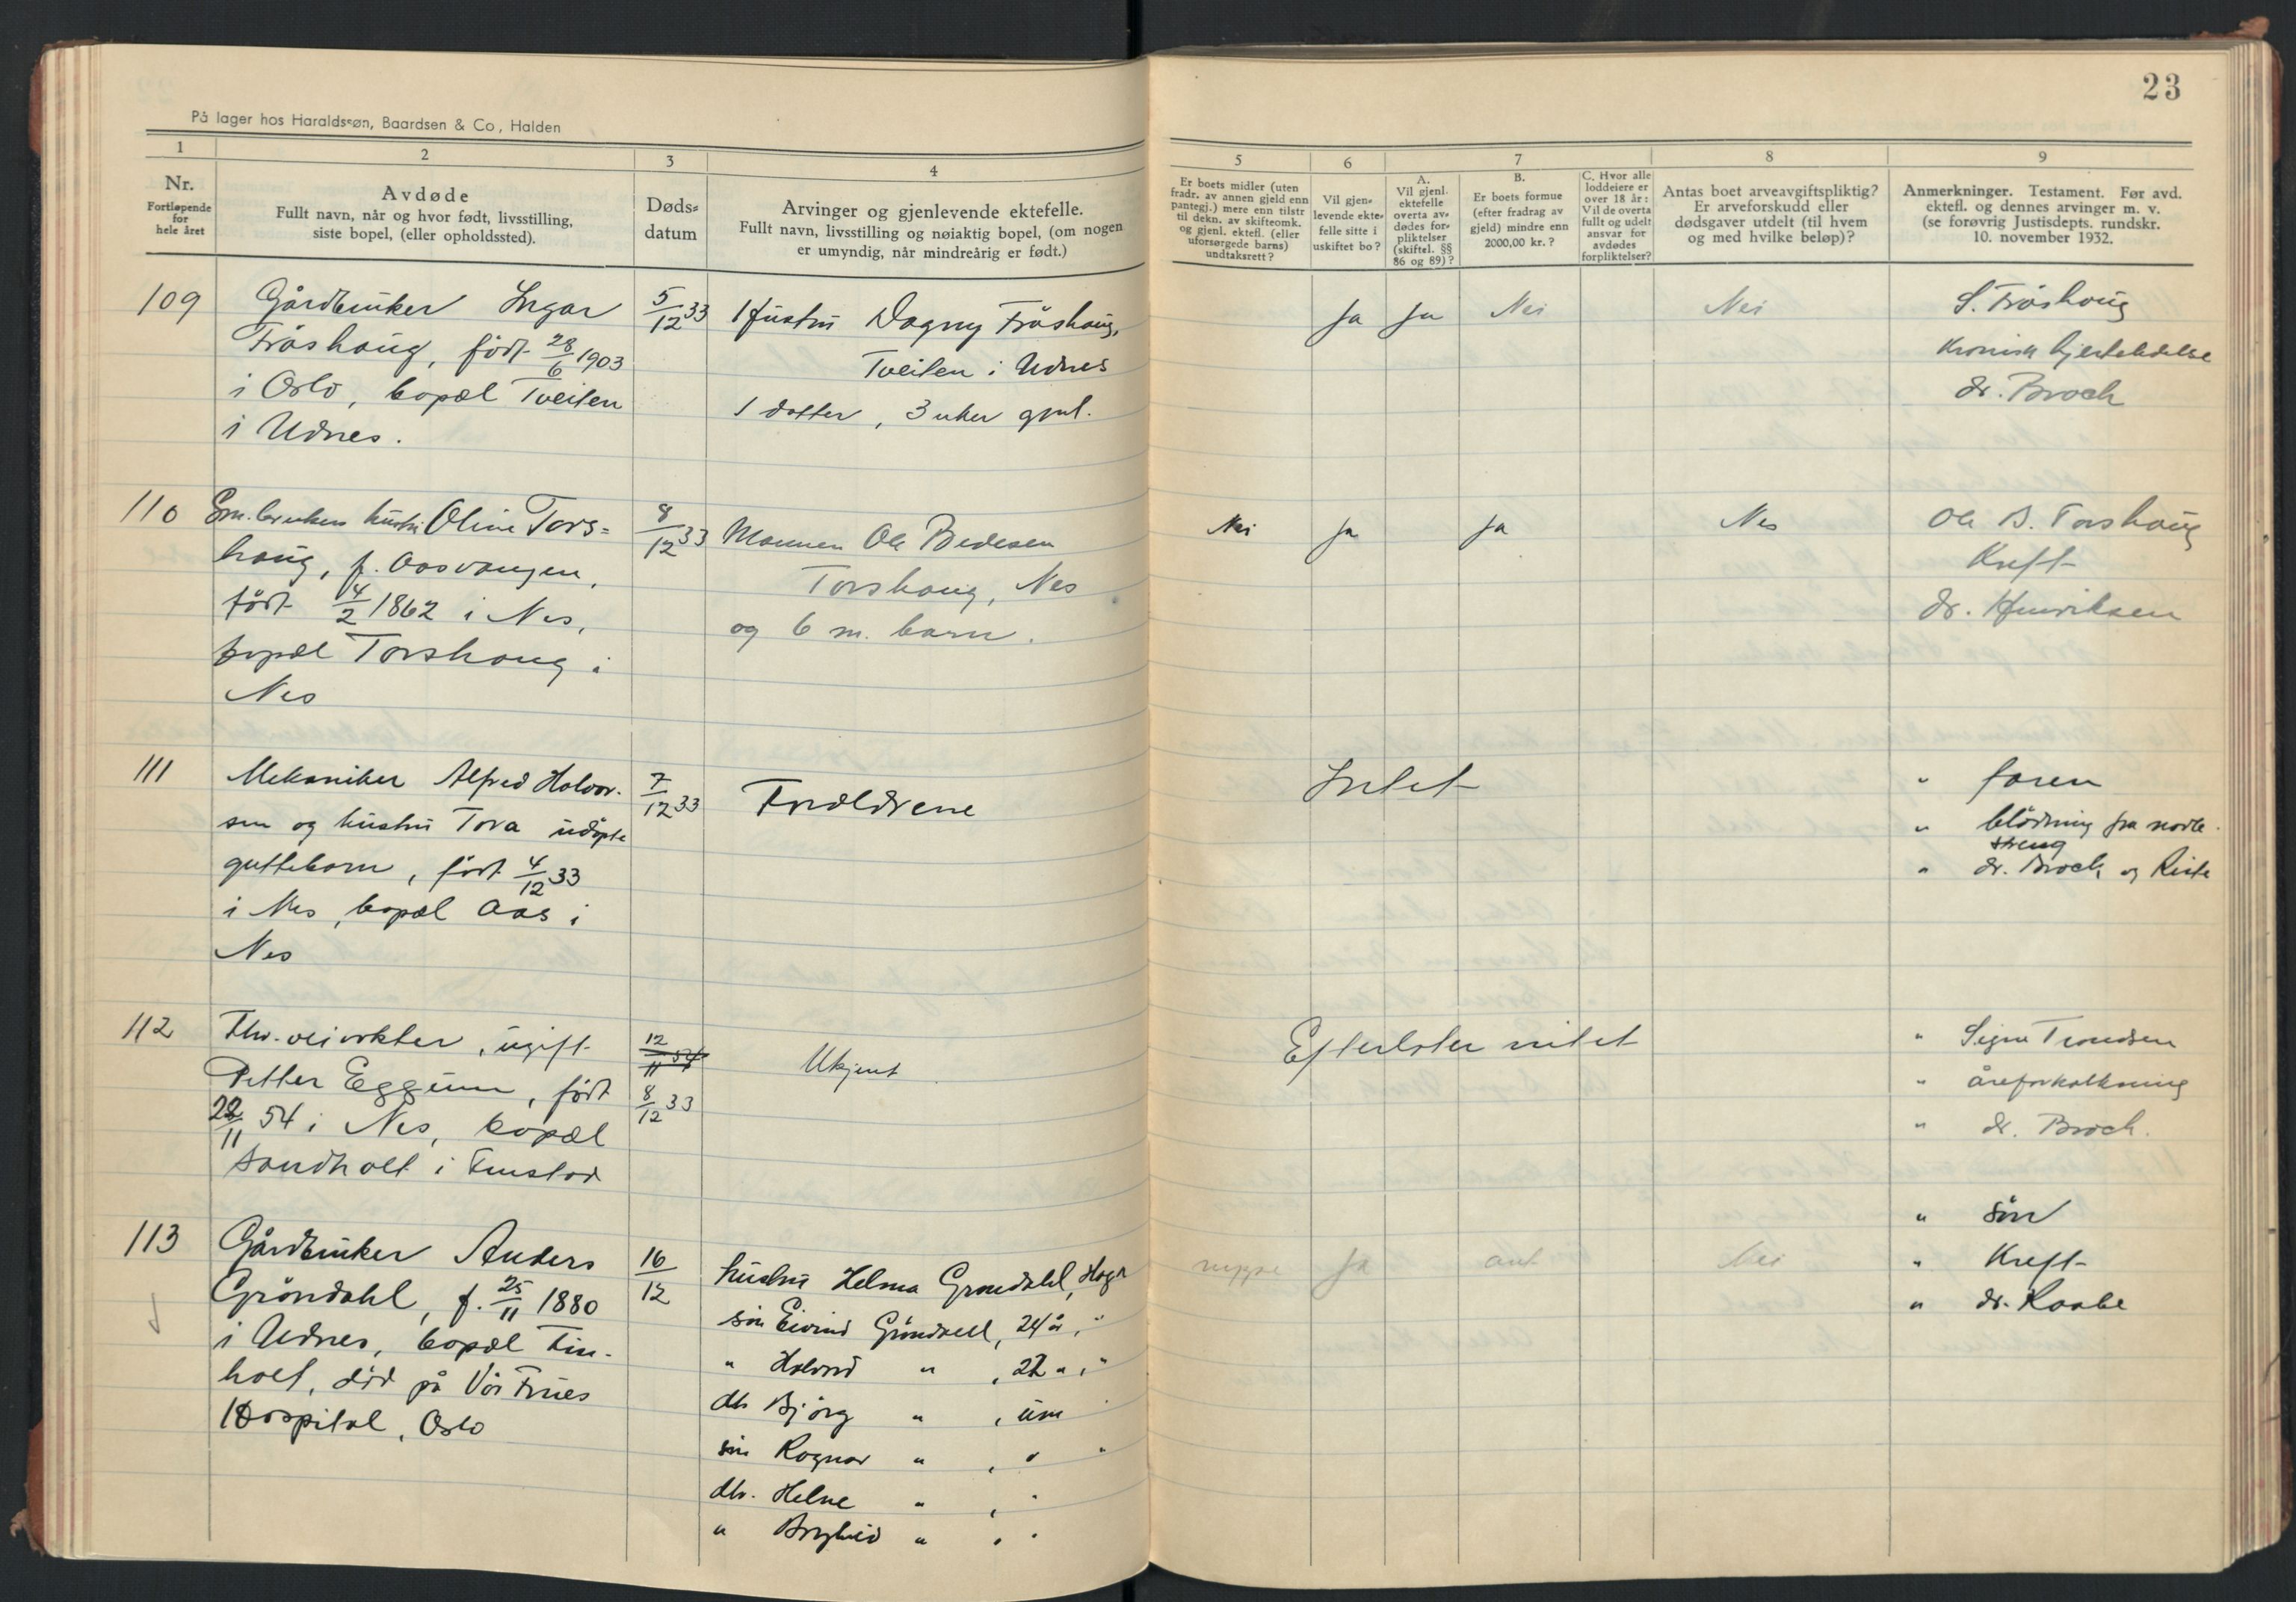 23
På lager hos Haraldssøn, Baardsen & Co, Halden
1
2
3
4
5
6
7
8
9
Nr.
Fortløpende
for
hele året
Avdøde
Fullt navn, når og hvor født, livsstilling,
siste bopel, (eller opholdssted).
Døds=
datum
Arvinger og gjenlevende ektefelle.
Fullt navn, livsstilling og nøiaktig bopel, (om nogen
er umyndig, når mindreårig er født.)
Er boets midler (uten
fradr. av annen gjeld enn
pantegj.) mere enn tilstr
til dekn. av skifteomk.
og gjenl. ektefl. (eller
uforsørgede barns)
undtaksrett?
Vil gjen=
levende ekte=
felle sitte i
uskiftet bo?
A.
Vil gjenl.
ektefelle
overta av=
dødes for=
pliktelser
(skiftel. §§
86 og 89)?
B.
Er boets formue
(efter fradrag av
gjeld) mindre enn
2000,00 kr.?
C. Hvor alle
loddeiere er
over 18 år:
Vil de overta
fullt og udelt
ansvar for
avdødes
forpliktelser?
Antas boet arveavgiftspliktig?
Er arveforskudd eller
dødsgaver utdelt (til hvem
og med hvilke beløp)?
Anmerkninger. Testament. Før avd.
ektefl. og dennes arvinger m. v.
(se forøvrig Justisdepts. rundskr.
10. november 1932.
109
Gårdbruker Ingar
Fråshaug, født 28/6 1903
i Oslo, bopæl Tveiten
i Udnes.
5/12 33
Hustru Dagny Fråshaug,
Tveiten i Udnes
1 datter, 3 uker gml.
Ja
Ja
Nei
Nei
S. Fråshaug
Kronisk hjertelidelse
dr. Broch
110
Sm.brukers hustru Oline Tors=
haug, f. Aasvangen,
født 14/2 1862 i Nes,
bopæl Torshaug i
Nes
8/12 33
Mannen Ole Bedesen
Torshaug, Nes
og 6 m. barn.
Nei
Ja
Ja
Nei
Ole B. Torshaug
Kreft
dr. Henriksen
111
Mekaniker Alfred Halvor-
sen og hustru Tora udøpte
guttebarn, født 4/12 33
i Nes, bopæl Aas i
Nes
7/12 33
Foreldrene
Intet
" faren
" blødning fra navle-
streng
" dr. Broch og
112
Fhv. veivokter, ugift
Petter Eggum, født
22/11 54 i Nes, bopæl
Sandholt i Fenstad
12/11 54
8/12 33
Ukjent
Efterlater intet
" Signe Trondsen
" åreforkalkning
" dr. Broch.
113
Gårdbruker Anders
Grøndahl, f. 25/11 1880
i Udnes, bopæl Fin-
holt, død på Vor Frues
Hospital, Oslo
16/12
hustru Helma Grøndahl,
søn Eivind Grøndahl, 24 år, "
" Halvord " , 22 " , "
dtr Bjørg " , um "
søn Ragnar " , " "
dtr. Helne " , "
" Borghild " , "
Ja
ant
Nei
" søn
" Kreft
" dr. Raabe